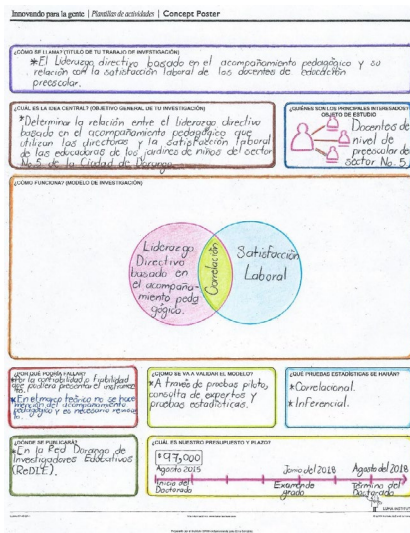 Innovando para la gente | Plantillas de actividades | Concept Poster
¿CÓMO SE LLAMA? (TÍTULO DE TU TRABAJO DE INVESTIGACIÓN)
*El Liderazgo directivo basado en el acompañamiento pedagógico y su
relación con la satisfacción laboral de los docentes de educación
preescolar.
¿CUÁL ES LA IDEA CENTRAL? (OBJETIVO GENERAL DE TU INVESTIGACIÓN)
*Determinar la relación entre el liderazgo directivo
basado en el acompañamiento pedagógico que
utilizan las directoras y la satisfacción laboral
de las educadoras de los jardines de niños del sector
No.5 de la Ciudad de Durango.
¿QUIÉNES SON LOS PRINCIPALES INTERESADOS?
OBJETO DE ESTUDIO
Docentes de
nivel de
preescolar del
sector No. 5
¿CÓMO FUNCIONA? (MODELO DE INVESTIGACIÓN)
Liderazgo
Directivo
basado en
el acompaña-
miento peda
gógico.
Correlación
Satisfacción
Laboral
¿POR QUÉ PODRÍA FALLAR?
*Por la confiabilidad o fiabilidad
que pudiera presentar el instrumen
to.
*En el marco teórico no se hace
mención del acompañamiento
pedagógico y es necesario
¿CÓMO SE VA A VALIDAR EL MODELO?
*A través de pruebas piloto,
consulta de expertos y
pruebas estadísticas.
¿QUÉ PRUEBAS ESTADÍSTICAS SE HARÁN?
*Correlacional.
*Inferencial.
¿DÓNDE SE PUBLICARÁ?
*En la Red Durango de
Investigadores Educativos
(ReDIE).
¿CUÁL ES NUESTRO PRESUPUESTO Y PLAZO?
$97,000
Agosto 2015
Junio del 2018
Agosto del 2018
Inicio del
Doctorado
Examen de
grado
Término del
Doctorado